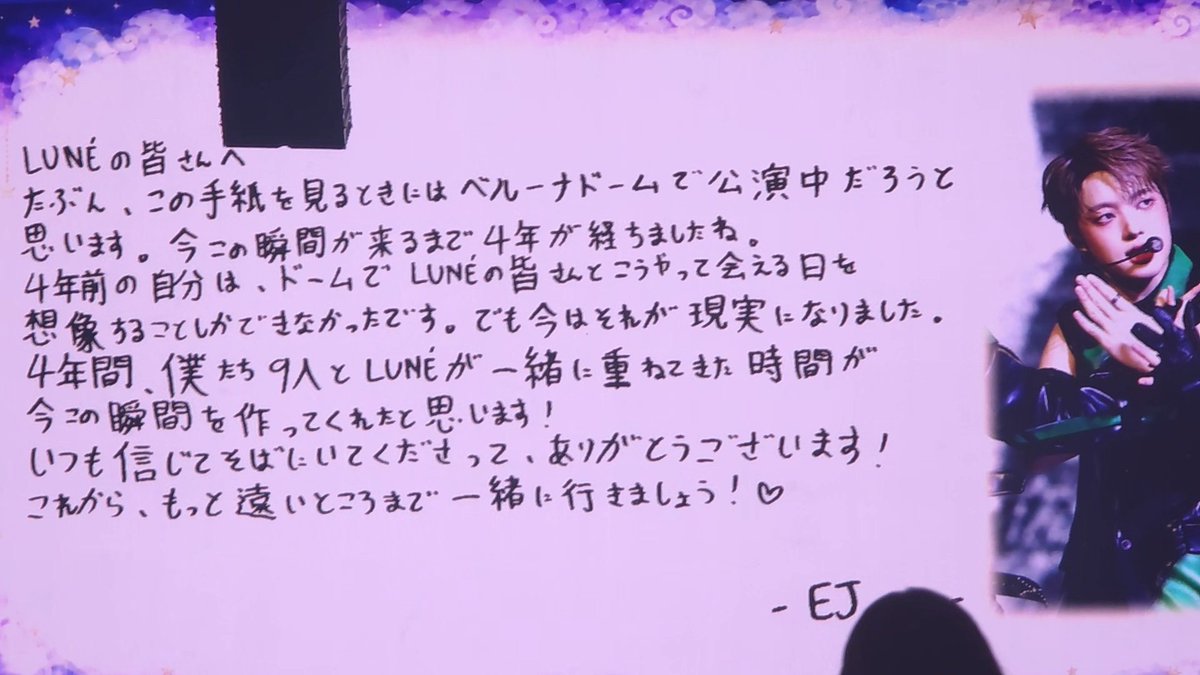 LUNÉの皆さんへ
たぶん、この手紙を見るときにはベルーナドームで公演中だろうと
思います。今この瞬間が来るまで4年が経ちましたね。
4年前の自分は、ドームでLUNÉの皆さんとこうやって会える日を
想像することしかできなかったです。でも今はそれが現実になりました。
4年間、僕たち9人とLUNÉが一緒に重ねてきた時間が
今この瞬間を作ってくれたと思います!
いつも信じてそばにいてくださって、ありがとうございます!
これから、もっと遠いところまで一緒に行きましょう!♡
- EJ -